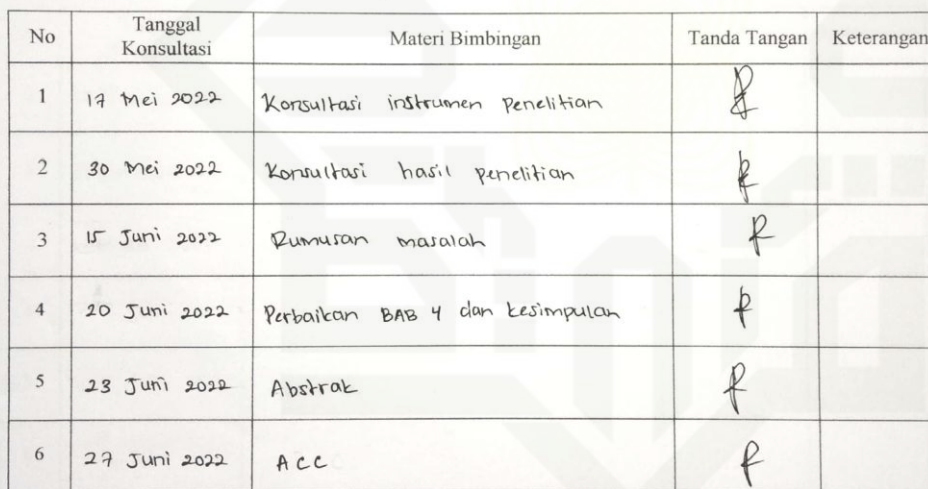 No Tanggal Konsultasi Materi Bimbingan Tanda Tangan Keterangan
1 17 Mei 2022 Konsultasi instrumen penelitian
2 30 Mei 2022 Konsultasi hasil penelitian
3 15 Juni 2022 Rumusan masalah
4 20 Juni 2022 Perbaikan BAB 4 dan kesimpulan
5 23 Juni 2022 Abstrak
6 27 Juni 2022 ACC